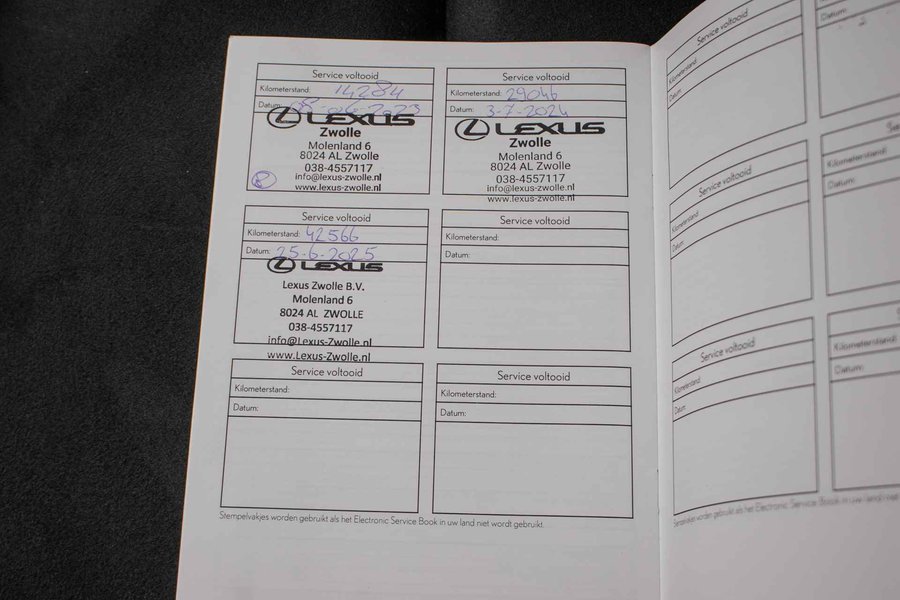 Service voltooid
Kilometerstand: 14284
Datum: 08-06-2023
LEXUS
Zwolle
Molenland 6
8024 AL Zwolle
038-4557117
info@lexus-zwolle.nl
www.lexus-zwolle.nl
Service voltooid
Kilometerstand: 29046
Datum: 3-7-2024
LEXUS
Zwolle
Molenland 6
8024 AL Zwolle
038-4557117
info@lexus-zwolle.nl
www.lexus-zwolle.nl
Service voltooid
Kilometerstand: 42566
Datum: 25-6-2025
LEXUS
Lexus Zwolle B.V.
Molenland 6
8024 AL ZWOLLE
038-4557117
info@Lexus-Zwolle.nl
www.Lexus-Zwolle.nl
Service voltooid
Kilometerstand:
Datum:
Service voltooid
Kilometerstand:
Datum:
Service voltooid
Kilometerstand:
Datum:
Stempelvakjes worden gebruikt als het Electronic Service Book in uw land niet wordt gebruikt.
Service voltooid
Kilometerstand:
Datum:
Datum:
Service voltooid
Kilometerstand:
Datum:
Kilometerstand:
Datum:
Service voltooid
Kilometerstand:
Datum:
Kilometerstand:
Datum:
Stempelvakjes worden gebruikt als het Electronic Service Book in uw land